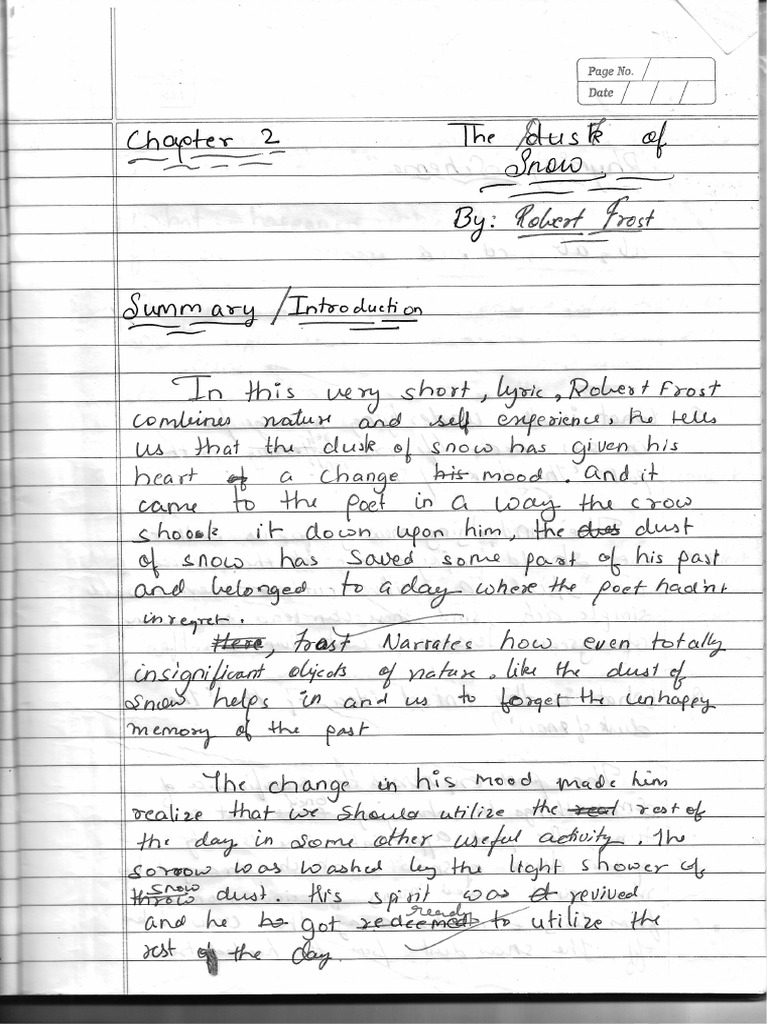 Page No.
Date
Chapter 2 The dusk of
Snow
By: Robert Frost
Summary / Introduction
In this very short, lyric, Robert Frost
combines nature and self experience, He tells
us that the dusk of snow has given his
heart of a change his mood. And it
came to the poet in a way the crow
shoook it down upon him, the dust
of snow has saved some part of his past
and belonged to a day where the poet hadn't
in regret.
Here, frost Narrates how even totally
insignificant objects of nature. like the dust of
snow helps in and us to forget the unhappy
memory of the past
The change in his mood made him
realize that we should utilize the real rest of
the day in some other useful activity. The
sorrow was washed by the light shower of
throw snow dust. His spirit was revived
and he got redeemed ready to utilize the
rest of the day.